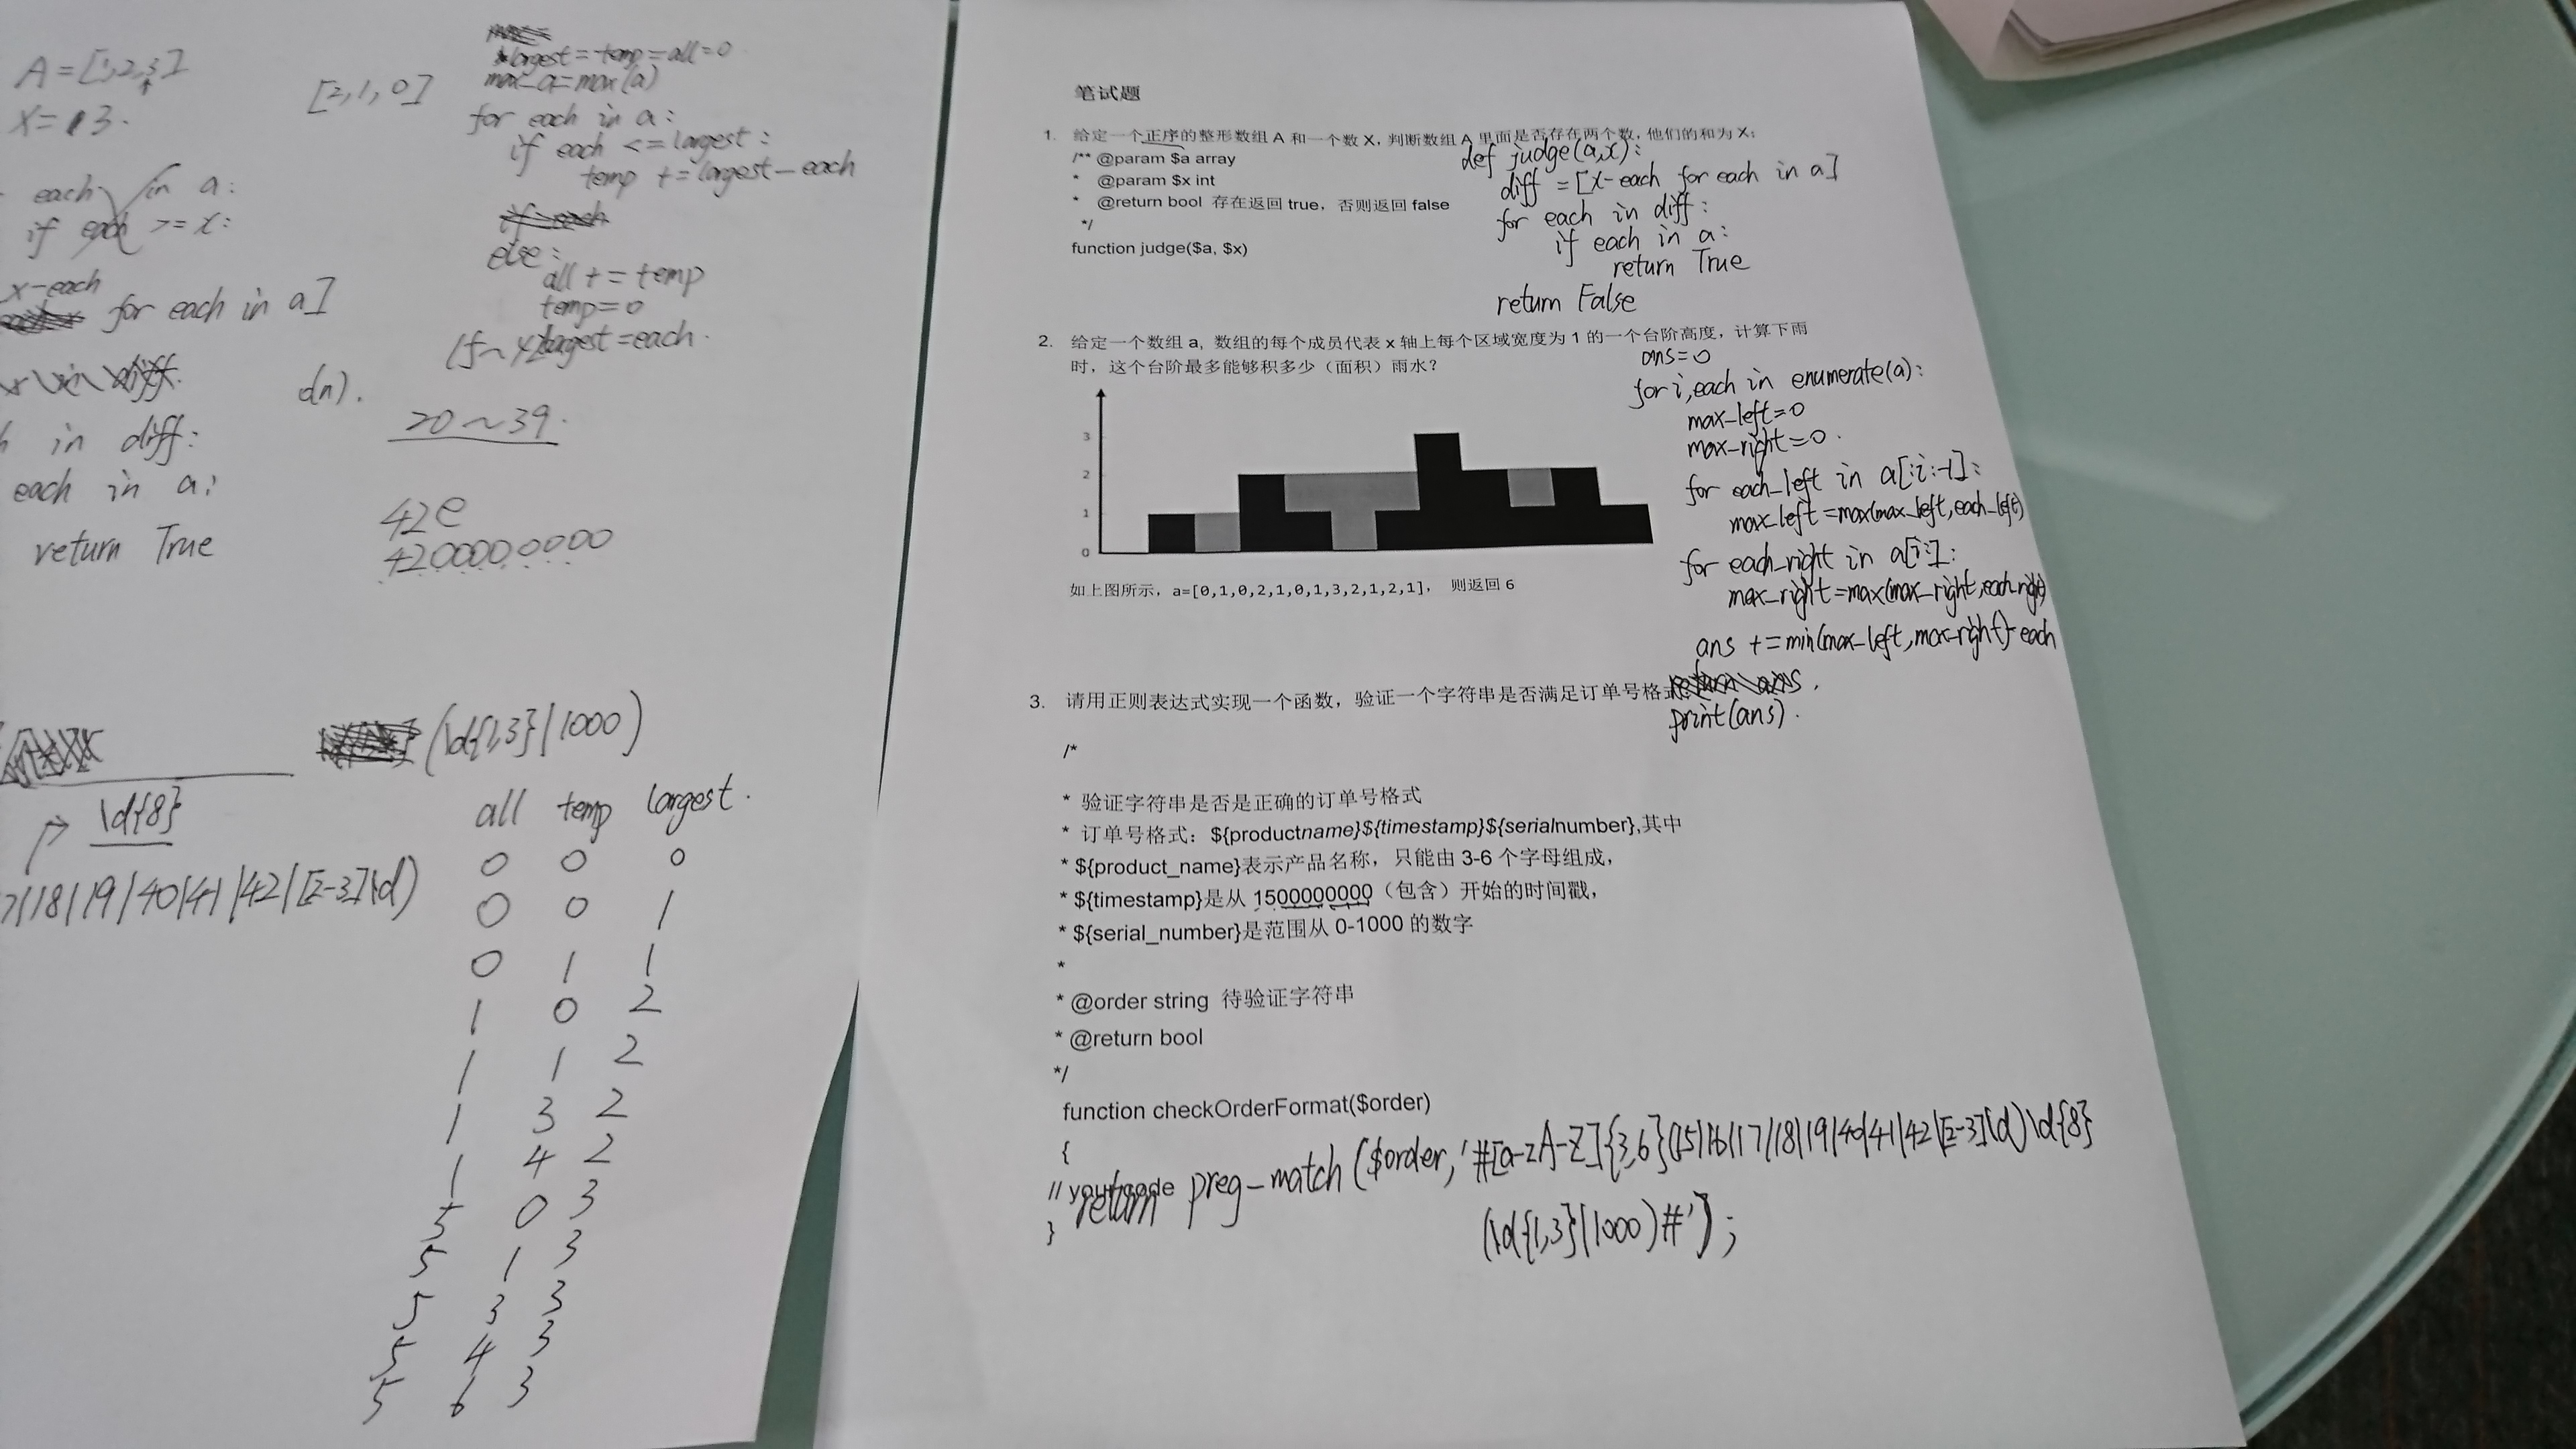 A=[1,2,3]
X=13.
each in a:
if each >= x:
x-each
for each in a]
in diff:
each in a:
return True
[2,1,0]
largest=temp=all=0
max_a=max(a)
for each in a:
if each <= largest:
temp += largest-each
else:
all += temp
temp=0
largest=each.
20~39.
42e
4200000000
(\d{1,3}|1000)
\d{8}
|18|19|40|41|42|[2-3]\d)
all temp largest.
0 0 0
0 0 1
0 1 1
1 0 2
1 1 2
1 3 2
1 4 2
5 0 3
5 1 3
5 3 3
5 4 3
5 6 3
笔试题
1. 给定一个正序的整形数组 A 和一个数 X, 判断数组 A 里面是否存在两个数, 他们的和为 X;
/** @param $a array
* @param $x int
* @return bool 存在返回 true, 否则返回 false
*/
function judge($a, $x)
def judge(a,x):
diff = [x-each for each in a]
for each in diff:
if each in a:
return True
return False
2. 给定一个数组 a, 数组的每个成员代表 x 轴上每个区域宽度为 1 的一个台阶高度, 计算下雨
时, 这个台阶最多能够积多少（面积）雨水?
3
2
1
0
如上图所示, a=[0,1,0,2,1,0,1,3,2,1,2,1], 则返回 6
ans=0
for i,each in enumerate(a):
max_left=0
max_right=0.
for each_left in a[:i:-1]:
max_left=max(max_left,each_left)
for each_right in a[i:]:
max_right=max(max_right,each_right)
ans += min(max_left,max_right)-each
print(ans).
3. 请用正则表达式实现一个函数, 验证一个字符串是否满足订单号格
/*
* 验证字符串是否是正确的订单号格式
* 订单号格式: ${productname}${timestamp}${serialnumber},其中
* ${product_name}表示产品名称, 只能由 3-6 个字母组成,
* ${timestamp}是从 1500000000（包含）开始的时间戳,
* ${serial_number}是范围从 0-1000 的数字
*
* @order string 待验证字符串
* @return bool
*/
function checkOrderFormat($order)
{
// your code
return preg-match($order,'#[a-zA-Z]{3,6}(15|16|17|18|19|40|41|42|[2-3]\d)\d{8}
(\d{1,3}|1000)#');
}